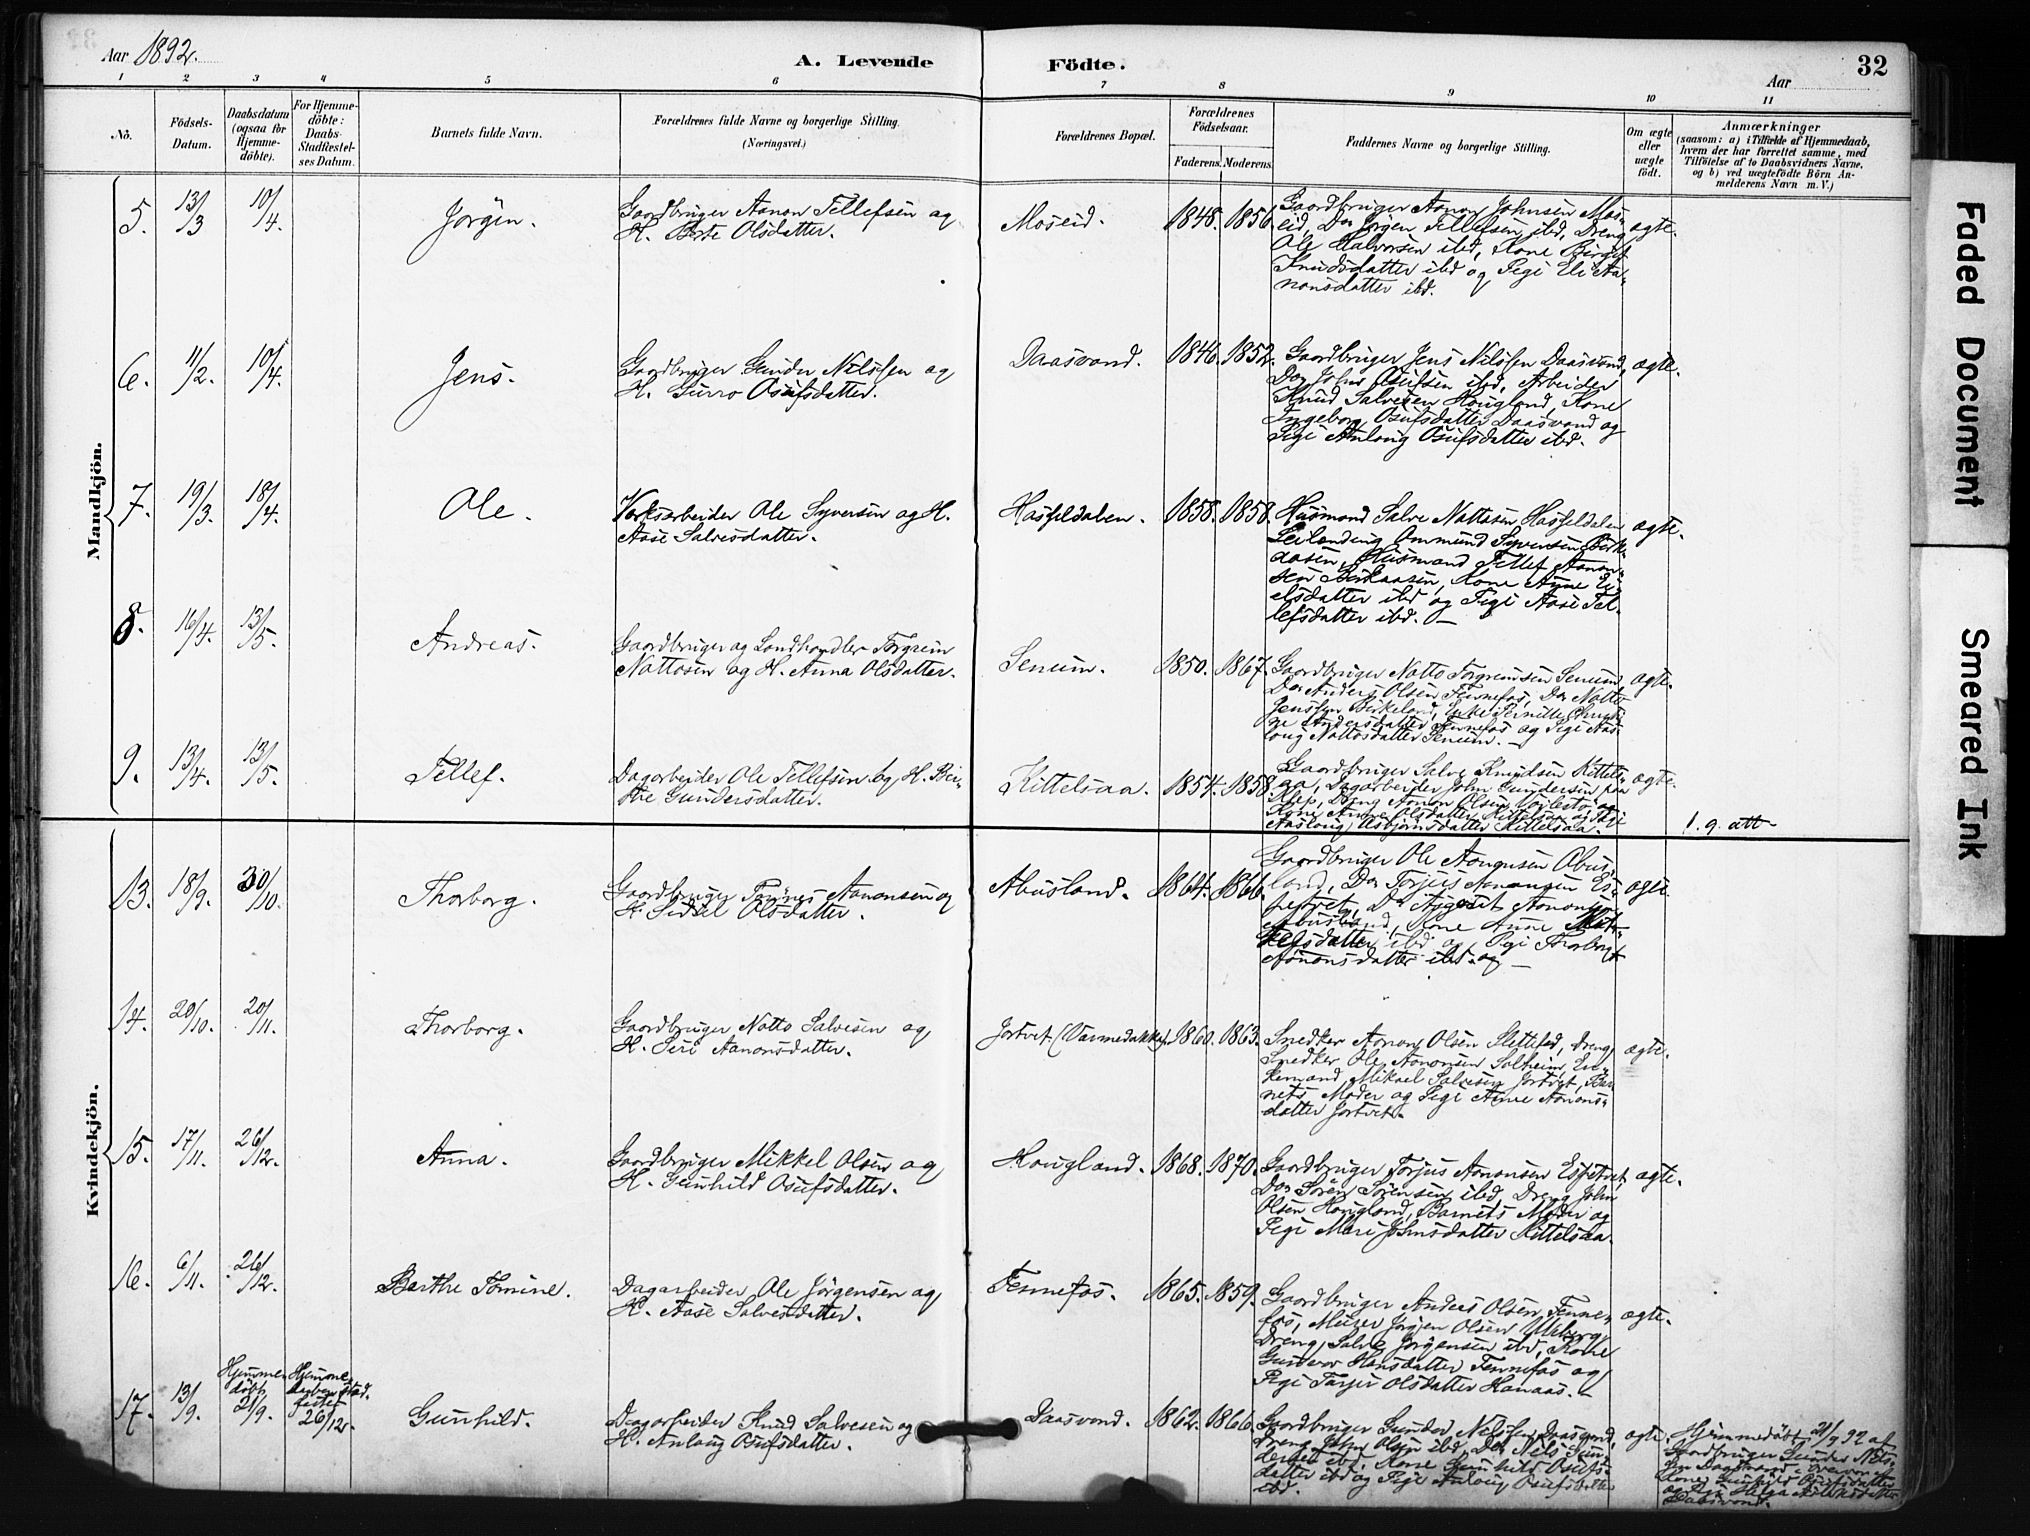 Aar 1892.
A. Levende Födte.
Aar
32
1 2 3 4 5 6 7 8 9 10 11
No.
Födsels-
Datum.
Daabsdatum
(ogsaa for
Hjemme-
döbte).
For Hjemme-
döbte:
Daabs-
Stadfæstel-
ses Datum.
Barnets fulde Navn.
Forældrenes fulde Navne og borgerlige Stilling.
(Næringsvei.)
Forældrenes Bopæl.
Forældrenes
Födselsaar.
Faderens. Moderens.
Faddernes Navne og borgerlige Stilling.
Om ægte
eller
uægte
födt.
Anmærkninger
(saasom: a) i Tilfælde af Hjemmedaab,
hvem der har forrettet samme, med
Tilföielse af to Daabsvidners Navne,
og b) ved uægtefödte Börn An-
melderens Navn m. V.)
Mandkjön.
5. 13/3 10/4. Jörgen.
Gaardbruger Aanon Tellefsen og
H. Berte Olsdatter.
Moseid. 1848. 1856.
Gaardbruger Aanon Johnsen Mos-
eid, Do Jörgen Tellefsen ibd, Dreng
Ole Halvorsen ibd, Kone Birget
Knudsdatter ibd og Pige Eli Aa-
nonsdatter ibd.
ægte.
6. 11/2. 10/4. Jens.
Gaardbruger Gunder Nilssen og
H. Gurro Osufsdatter.
Daasvand. 1846. 1852.
Gaardbruger Jens Nilssen Daasvand,
Do John Osufsen ibd, Arbeider
Knud Salvesen Hougland, Kone
Ingeborg Osufsdatter Daasvand og
Pige Anlaug Osufsdatter ibd.
ægte.
7. 19/3. 18/4. Ole.
Verksarbeider Ole Syversen og H.
Aase Salvesdatter.
Hasseldalen. 1858. 1858.
Husmand Salve Nattosen Hasseldalen
Leilænding Ommund Syversen Birk-
aasen, Husmand Tellef Aanon-
sen Birkaasen, Kone Anne
elsdatter ibd og Pige Aase Tel-
lefsdatter ibd. —
ægte.
8. 16/4. 13/5. Andreas.
Gaardbruger og Landhandler Torgrim
Nattosen og H. Anna Olsdatter.
Senum. 1850. 1867.
Gaardbruger Natto Torgrimsen Senum
Do Anders Olsen Fennefos, Do Natto
Jenssen Birkeland, Enke Pernille Christi-
ne Andersdatter Fennefos og Pige Aas-
laug Nattosdatter Senum. —
ægte.
9. 13/4. 13/5. Tellef.
Dagarbeider Ole Tellefsen og H. Bir-
the Gundersdatter.
Kittelsaa. 1854. 1858.
Gaardbruger Salve Knudsen Kittels-
aa, Dagarbeider John Gundersen paa
Klep, Dreng Aanon Olsen og
Kone Anne Olsdatter Kittelsaa og Pige
Aaslaug Asbjörnsdatter Kittelsaa.
ægte.
1. g. att
Kvindekjön.
13. 18/9. 30/10. Thorborg.
Gaardbruger Aanonsen og
H. Sidsel Olsdatter.
Abusland. 1864. 1866.
Gaardbruger Ole Aanonsen Abus-
land, Do Torjus Aanonsen Es-
petvet, Do Aanonsen
Abusland, Kone Anne Mik-
kelsdatter ibd og Pige Thorborg
Aanonsdatter ibd. og —
ægte
14. 20/10. 20/11. Thorborg.
Gaardbruger Natto Salvesen og
H. Siri Aanonsdatter.
Jortvet (Varmedakka). 1860. 1863.
Snedker Aanon Olsen Slettefed, Dreng
Snedker Ole Aanonsen Solheim, En-
kemand Mikael Salvesen Jortvet, Bar-
nets Moder og Pige Anne Aanons-
datter Jortvet.
ægte.
15. 17/11. 26/12. Anna.
Gaardbruger Mikkel Olsen og
H. Gunhild Osufsdatter.
Hougland. 1868. 1870.
Gaardbruger Torjus Aanonsen Espetvet,
Do Sören Sörensen ibd, Dreng John
Olsen Hougland, Barnets Moder og
Pige Mari Johnsdatter Kittelsaa.
ægte.
16. 6/11. 26/12. Berthe Tomine.
Dagarbeider Ole Jörgensen og
H. Aase Salvesdatter.
Fennefos. 1865. 1859.
Gaardbruger Anders Olsen Fenne-
fos, Murer Jörgen Olsen Ukberg,
Dreng Salve Jörgensen ibd, Kone
Gunvor Hansdatter Fennefos og
Pige Tarjer Olsdatter Hanaas. —
ægte.
17. 13/9. Hjemme-
döbt
21/9.
Hjemme-
daaben stad-
fæstet
26/12.
Gunhild.
Dagarbeider Knud Salvesen og
H. Anlaug Osufsdatter.
Daasvand. 1862. 1866.
Gaardbruger Gunder Nilssen Daasvand,
Dreng John Olsen ibd, Do Nils Gun-
dersen ibd, Kone Gunhild Osufs-
datter ibd og Pige Anlaug Osufsdatter
ibd.
ægte
Hjemmedöbt 21/9 92 af
Gaardbruger Gunder Nils-
sen Daasvand.
Kone Gunhild Osufsdatter
og Pige
Daasvand.
Faded Document
Smeared Ink